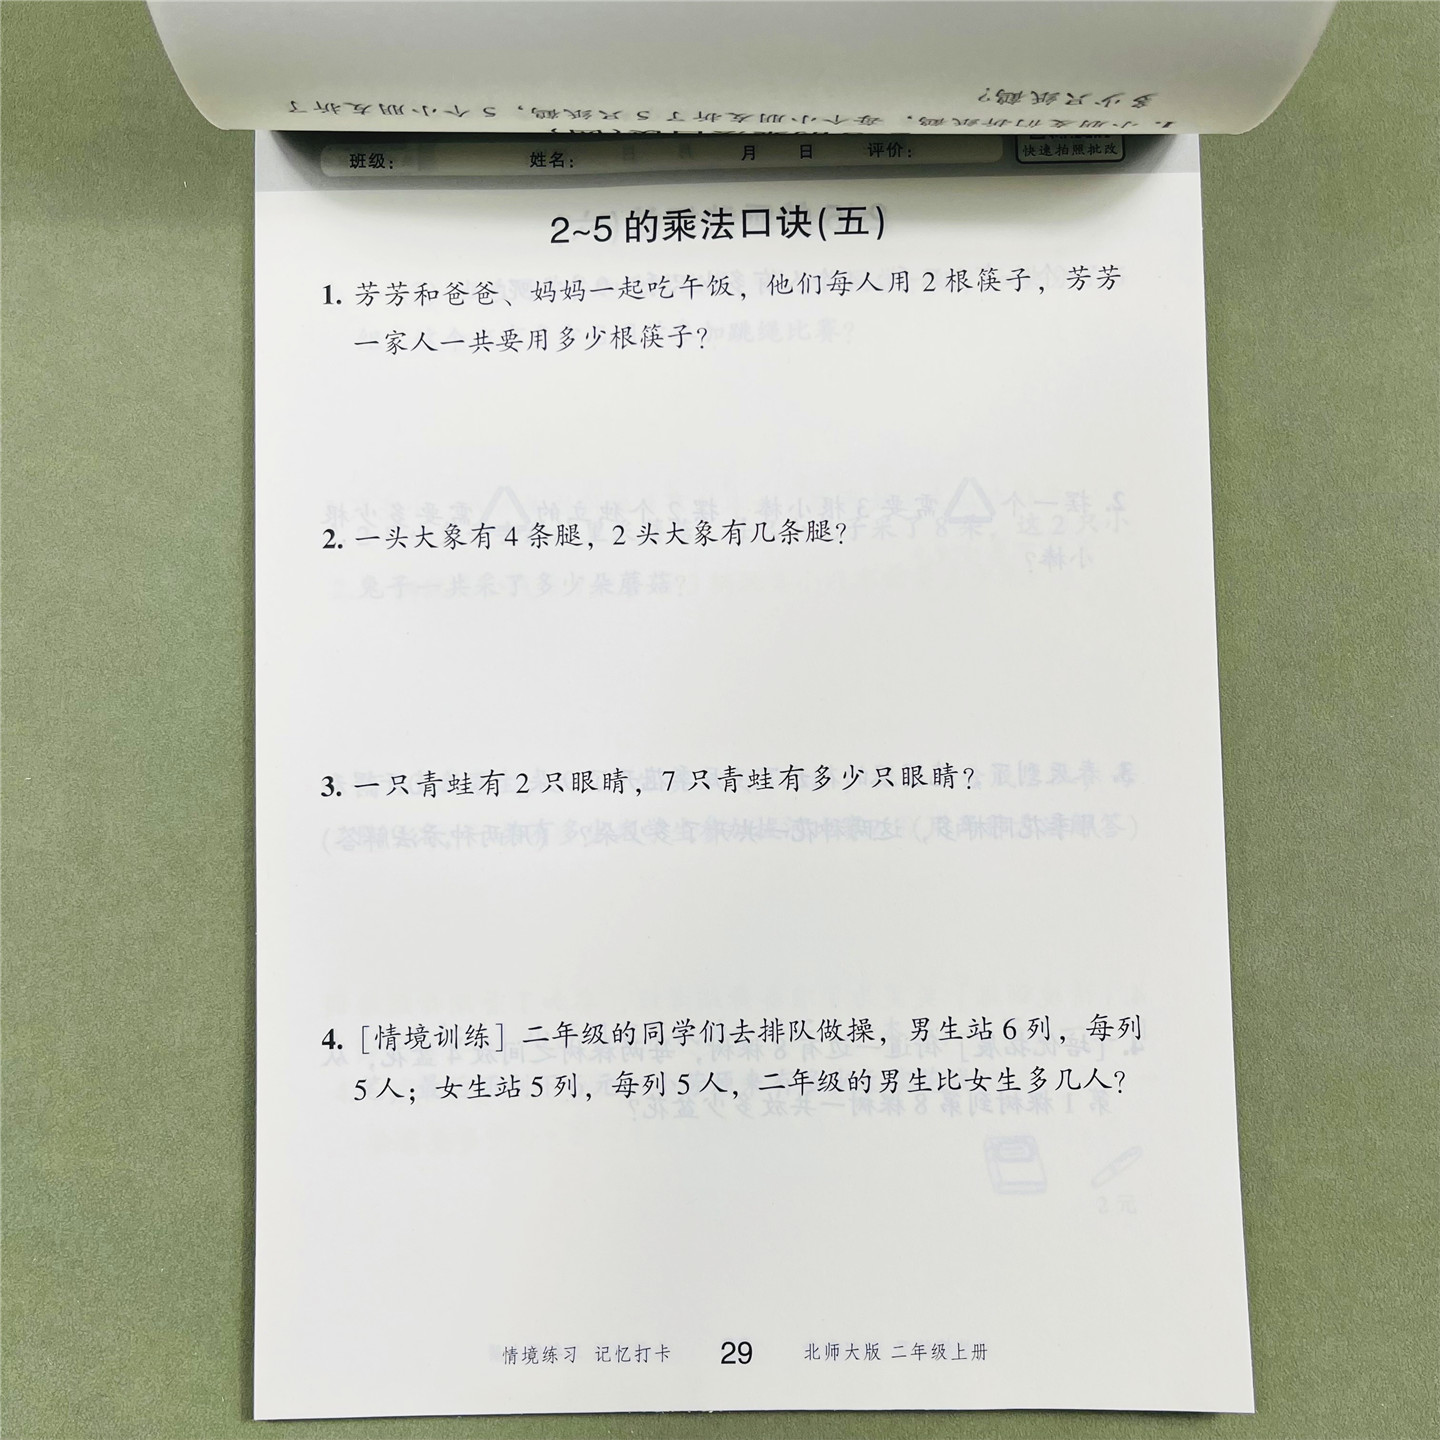 1. 小朋友们折纸鹤，每个小朋友折了5只纸鹤，5个小朋友折了
多少只纸鹤？
班级： 姓名： 月 日 评价：
快速拍照批改
2~5的乘法口诀(五)
1. 芳芳和爸爸、妈妈一起吃午饭，他们每人用2根筷子，芳芳
一家人一共要用多少根筷子？
2. 一头大象有4条腿，2头大象有几条腿？
3. 一只青蛙有2只眼睛，7只青蛙有多少只眼睛？
4. [情境训练] 二年级的同学们去排队做操，男生站6列，每列
5人；女生站5列，每列5人，二年级的男生比女生多几人？
情境练习 记忆打卡 29 北师大版 二年级上册